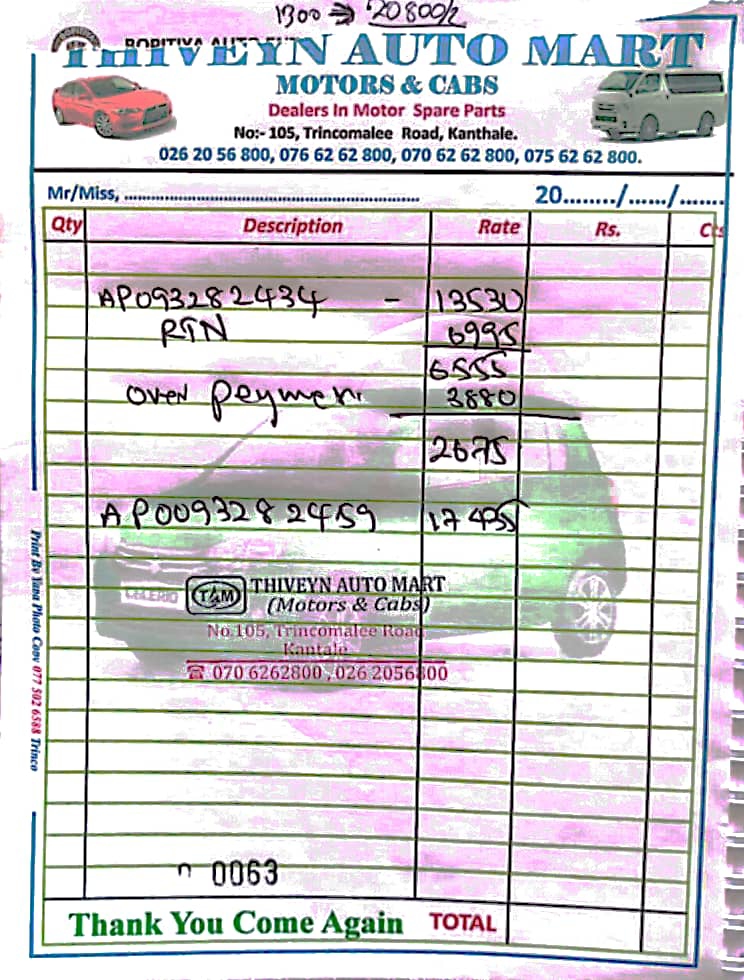 1300 → 20800/2
THIVEYN AUTO MART
MOTORS & CABS
Dealers In Motor Spare Parts
No:- 105, Trincomalee Road, Kanthale.
026 20 56 800, 076 62 62 800, 070 62 62 800, 075 62 62 800.
Mr/Miss, ........................................................ 20......../....../.......
Qty Description Rate Rs. Cts
AP093282434 - 13530
RTN 6995
6555
over peyment 3880
2675
AP0093282459 17435
CELERIO
T&M THIVEYN AUTO MART
(Motors & Cabs)
No.105, Trincomalee Road
Kantale
☎ 070 6262800 , 026 2056800
Print By Yana Photo Copy 077 502 6588 Trinco
0063
Thank You Come Again TOTAL